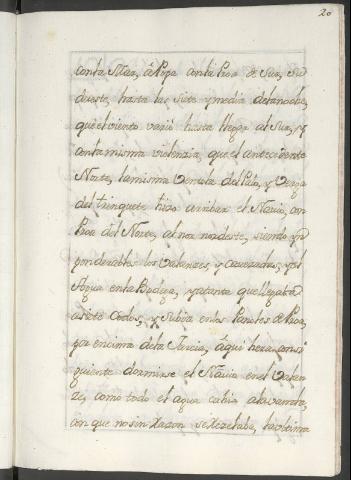 20
conla Mar, â Popa conla Proa de Sur, Su
dueste, hasta las siete y media delanoche,
que el viento varió hasta llegar al Sur, y
conlamisma violencia, que el antecedente
Norte, lamisma Verda del Palo, y Verga
del trinquete hizo arribar el Navio, con
Proa del Norte, al nor nordeste, siendo yn
ponderables los Balanzes, y
Agua enla Bodega, y atanta que llegaba
asiete Codos, y subia enlos Panoles de Proa,
por encima dela Jarcia, âqui hera consi
guiente dormirse el Navio en el Balan
ze, como todo el agua cahia alavanda,
con que no sin Razon se Rezelaba, la ultima